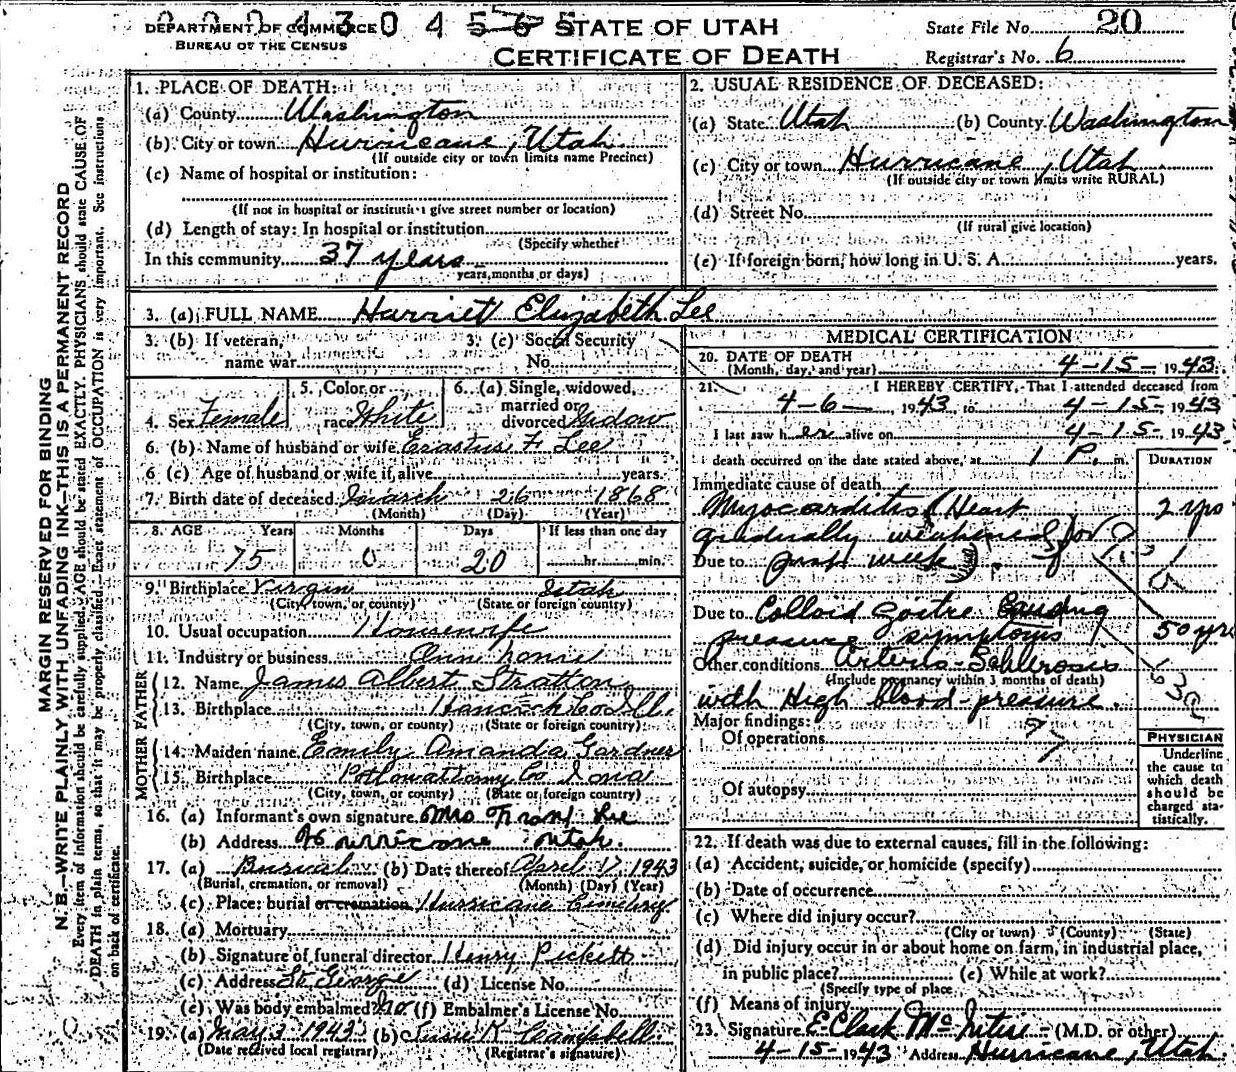 DEPARTMENT OF COMMERCE
BUREAU OF THE CENSUS
STATE OF UTAH
CERTIFICATE OF DEATH
State File No. 20
Registrar's No. 6
MARGIN RESERVED FOR BINDING
N. B.—WRITE PLAINLY WITH UNFADING INK—THIS IS A PERMANENT RECORD
Every item of information should be carefully supplied. AGE should be stated EXACTLY. PHYSICIANS should state CAUSE OF
DEATH in plain terms, so that it may be properly classified. Exact statement of OCCUPATION is very important. See instructions
on back of certificate.
1. PLACE OF DEATH:
(a) County Washington
(b) City or town Hurricane, Utah.
(If outside city or town limits name Precinct)
(c) Name of hospital or institution:
(If not in hospital or institution give street number or location)
(d) Length of stay: In hospital or institution
(Specify whether
In this community 37 years
years, months or days)
2. USUAL RESIDENCE OF DECEASED:
(a) State Utah (b) County Washington
(c) City or town Hurricane, Utah
(If outside city or town limits write RURAL)
(d) Street No.
(If rural give location)
(e) If foreign born, how long in U. S. A. years.
3. (a) FULL NAME Harriet Elizabeth Lee
3. (b) If veteran, name war
3. (c) Social Security No.
4. Sex Female
5. Color or race White
6. (a) Single, widowed, married or divorced Widow
6. (b) Name of husband or wife Erastus F. Lee
6 (c) Age of husband or wife if alive years.
7. Birth date of deceased March 26 1868
(Month) (Day) (Year)
8. AGE Years Months Days If less than one day
75 0 20 hr. min.
9. Birthplace Virgin Utah
(City, town, or county) (State or foreign country)
10. Usual occupation Housewife
11. Industry or business Own home
FATHER
12. Name James Albert Stratton
13. Birthplace Hancock Co Ill.
(City, town, or county) (State or foreign country)
MOTHER
14. Maiden name Emily Amanda Gardner
15. Birthplace Pottowattomy Co Iowa
(City, town, or county) (State or foreign country)
16. (a) Informant's own signature Mrs Frank Lee
(b) Address Hurricane Utah.
17. (a) Burial (b) Date thereof April 17 1943
(Burial, cremation, or removal) (Month) (Day) (Year)
(c) Place: burial or cremation Hurricane Cemetery
18. (a) Mortuary
(b) Signature of funeral director Henry Pickett
(c) Address St. George (d) License No.
(e) Was body embalmed? No. (f) Embalmer's License No.
19. (a) May 3 1943 (b) K Campbell
(Date received local registrar) (Registrar's signature)
MEDICAL CERTIFICATION
20. DATE OF DEATH
(Month, day, and year) 4-15- 1943.
21. I HEREBY CERTIFY, That I attended deceased from
4-6- 1943 to 4-15- 1943
I last saw her alive on 4-15- 1943.
death occurred on the date stated above, at 1 P. m.
DURATION
Immediate cause of death
Myocarditis (Heart 2 yrs
gradually weakened for
Due to past week).
Due to Colloid Goitre Causing
pressure symptoms 50 yrs
Other conditions Arterio-Schlerosis
(Include pregnancy within 3 months of death)
with High blood-pressure.
Major findings:
Of operations
Of autopsy
PHYSICIAN
Underline
the cause to
which death
should be
charged sta-
tistically.
22. If death was due to external causes, fill in the following:
(a) Accident, suicide, or homicide (specify)
(b) Date of occurrence
(c) Where did injury occur?
(City or town) (County) (State)
(d) Did injury occur in or about home on farm, in industrial place,
in public place? (e) While at work?
(Specify type of place
(f) Means of injury
23. Signature E. Clark McIntire - (M.D. or other)
4-15-1943 Address Hurricane, Utah.